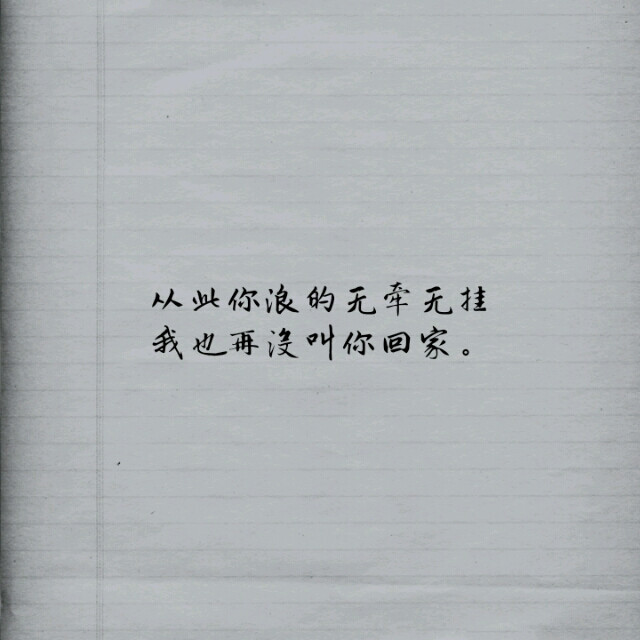 从此你浪的无牵无挂
我也再没叫你回家。